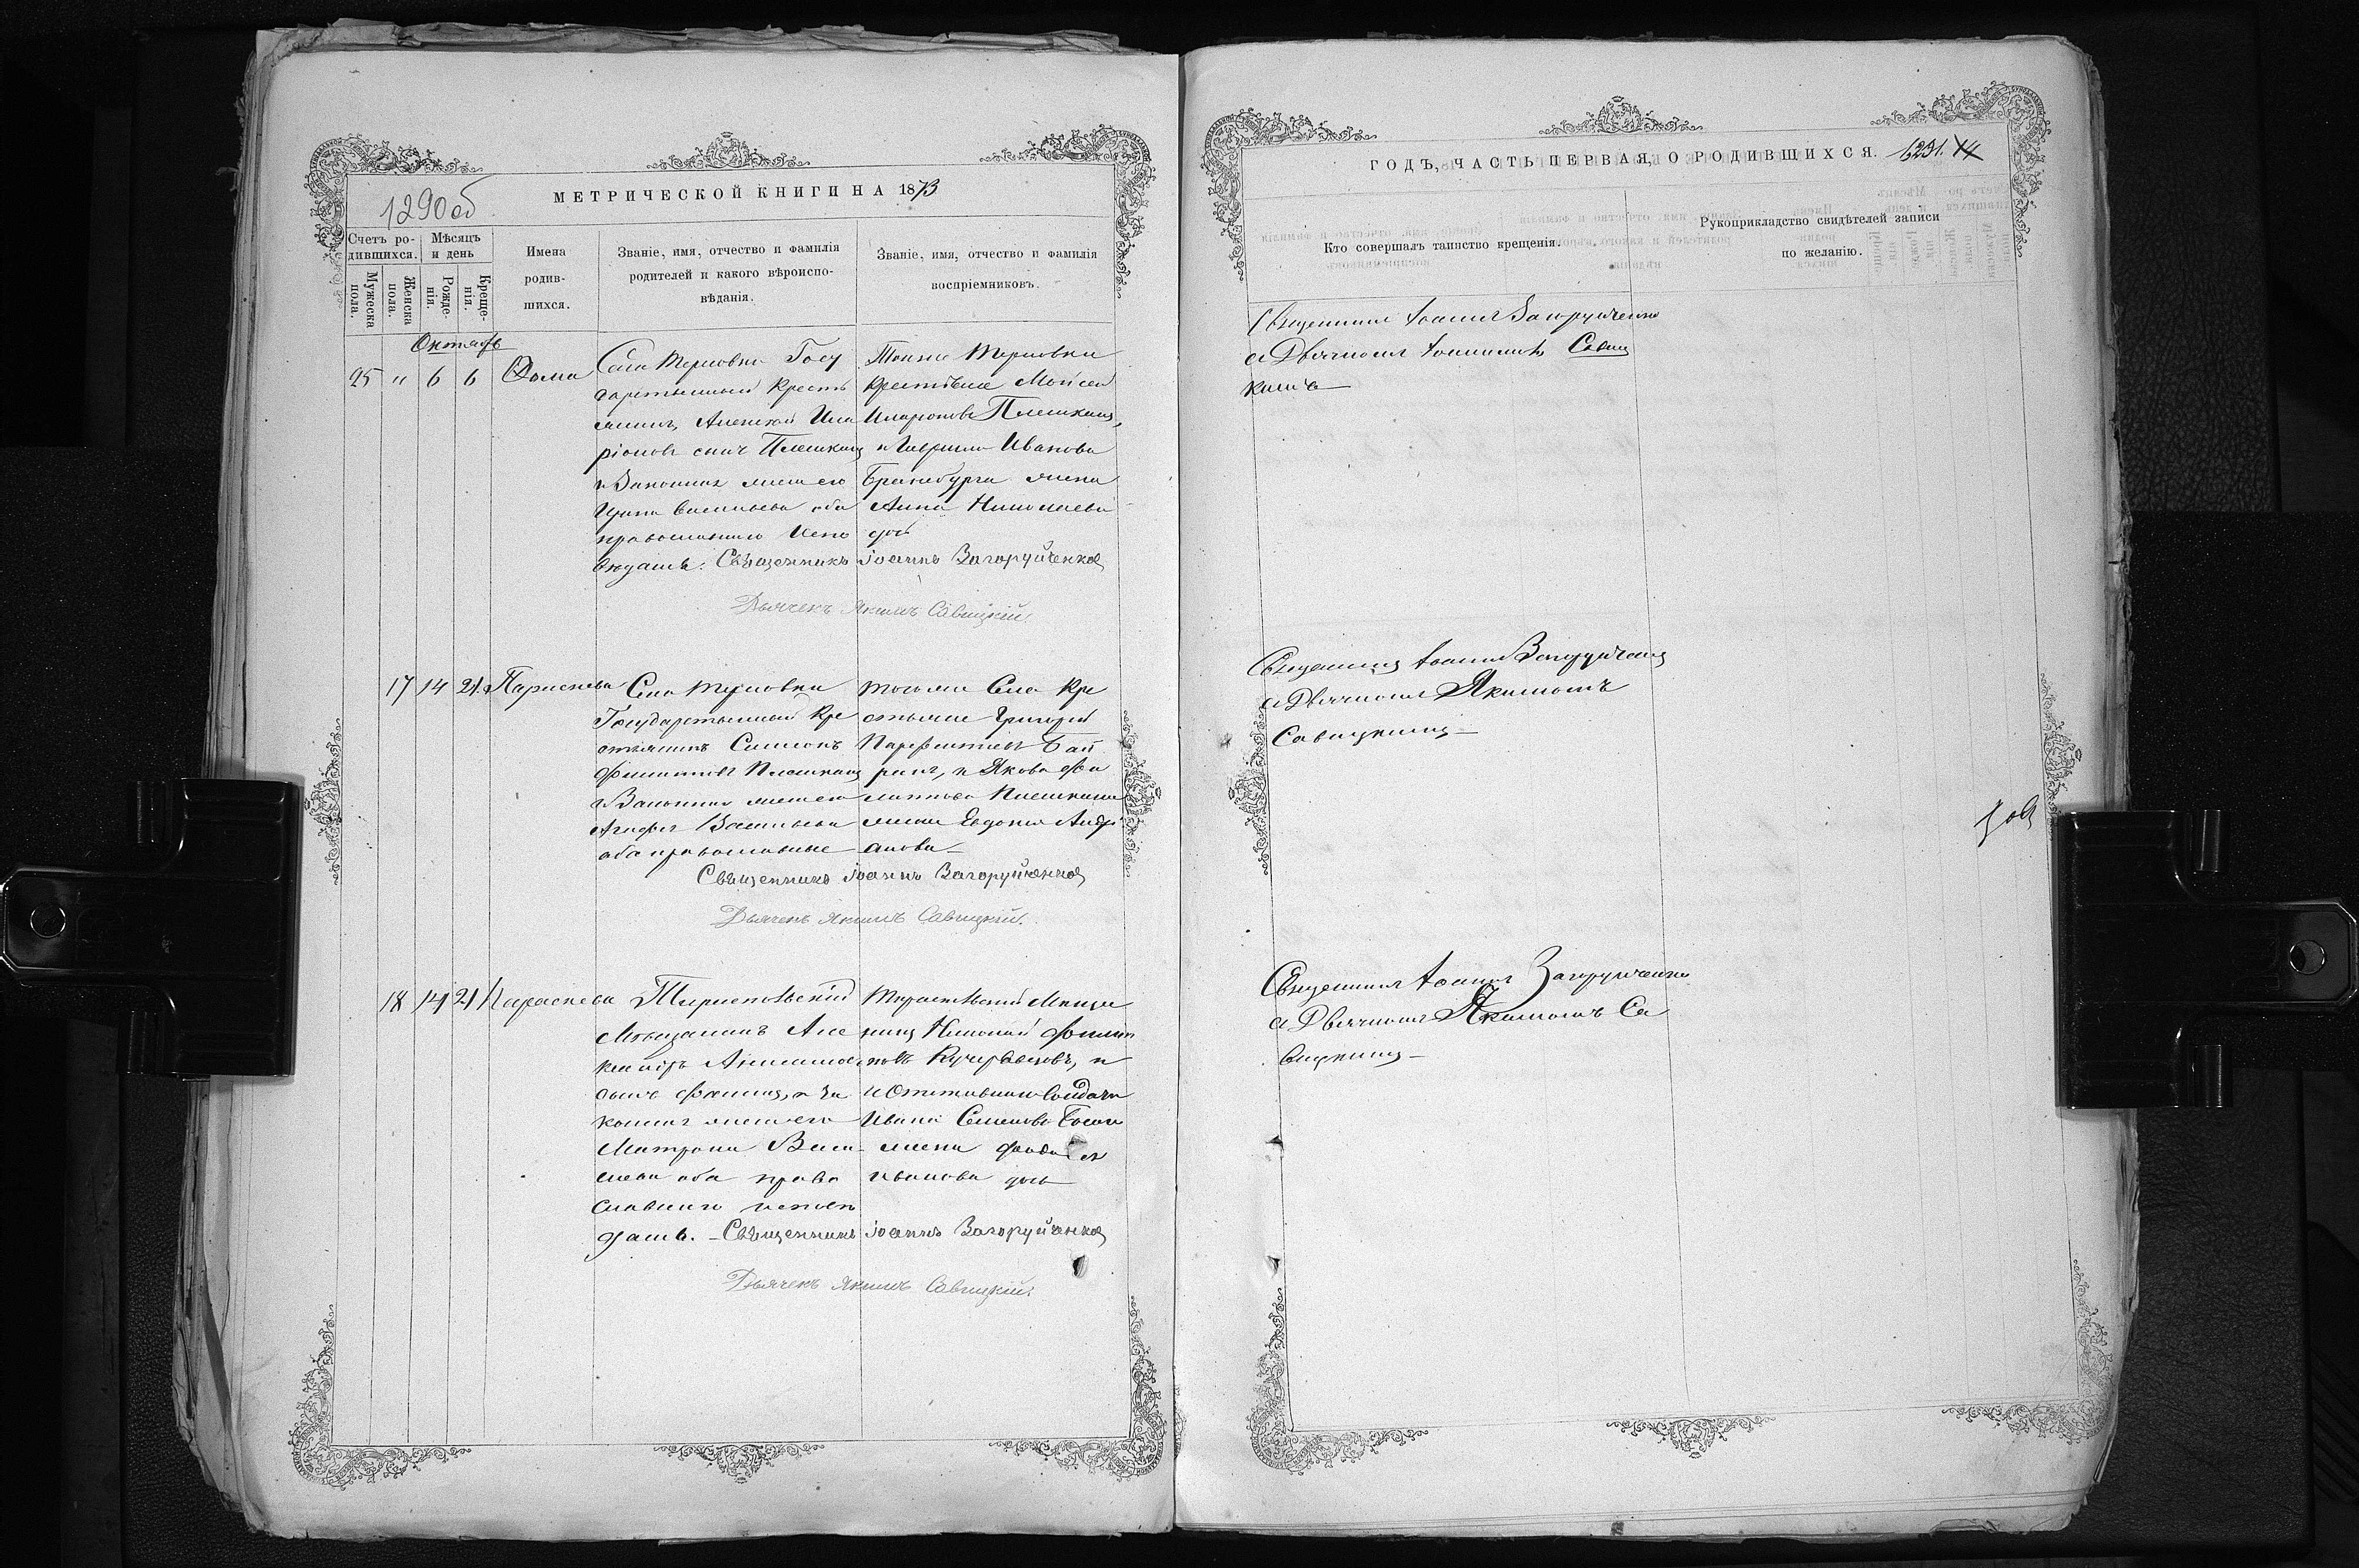 МЕТРИЧЕСКОЙ КНИГИ НА 1873
1290об
Счетъ ро-
дившихся.
Мужеска
пола.
Женска
пола.
Мѣсяцъ
и день
Рожде-
нія.
Креще-
нія.
Имена
родив-
шихся.
Званіе, имя, отчество и фамилія
родителей и какого вѣроиспо-
вѣданія.
Званіе, имя, отчество и фамилія
воспріемниковъ.
Октябъ
25 " 6 6 Фома
Села Терновки Госу
дарственный Кресть
янинъ Алексей Ила
ріоновъ сынъ Плешканц
и Законная жена его
Ирина Васильева оба
православнаго Испо
вѣданія.
Тойже Терновки
Крестьяне Мойсей
Иларионовъ Плешканц,
и Гавриила Иванова
жена
Анна Николаева
дочь
Священникъ Іоаннъ Загоруйченко
Дьячекъ Якимъ Савицкій.
17 14 21. Параскева
Села Терновки
Государственный Кре
стьянинъ Симеонъ
Филиповъ Плешканц
и Законная жена его
Агафія Васильева
оба православные
тогоже Села Кре
стьяне Григорій
Парфентіевъ Бай
ракъ, и Якова Фи
липпова Плешканца
жена Евдокія Андрі
анова
Священникъ Іоаннъ Загоруйченко
Дьячекъ Якимъ Савицкій.
18 14 21 Параскева
Тираспольскій
Мѣщанинъ Але
ксандръ
сынъ и За
конная жена его
Матрона Васи
лиева оба право
славнаго исповѣ
данія.
Тираспольскій Мѣща
нинъ Николай Филип
повъ и
и Отставнаго Солдата
Ивана Семенова
жена
Иванова дочь
Священникъ Іоаннъ Загоруйченко
Дьячекъ Якимъ Савицкій.
ГОДЪ, ЧАСТЬ ПЕРВАЯ, О РОДИВШИХСЯ. 1291.
Кто совершалъ таинство крещенія.
Рукоприкладство свидѣтелей записи
по желанію.
Священникъ Іоаннъ Загоруйченко
съ Дьячкомъ Савиц
кимъ
Священникъ Іоаннъ Загоруйченко
съ Дьячкомъ Якимомъ
Савицкимъ
Священникъ Іоаннъ Загоруйченко
съ Дьячкомъ Якимомъ Са
вицкимъ